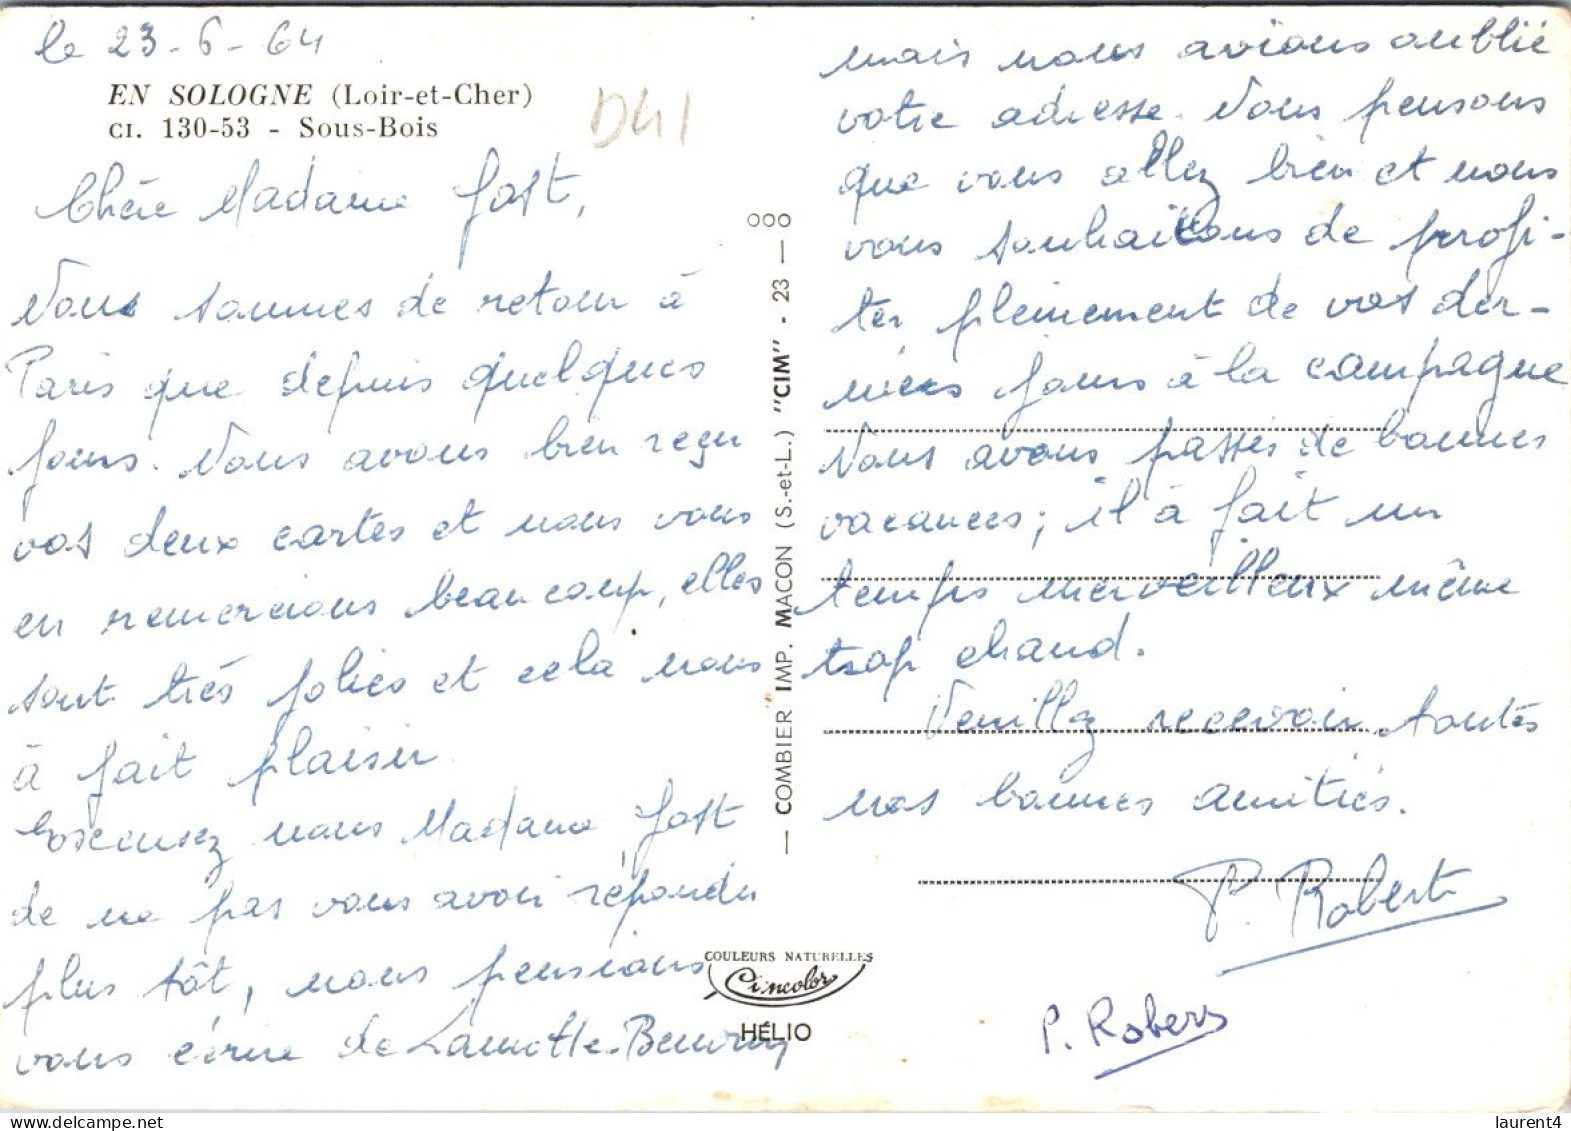 le 23-6-64
EN SOLOGNE (Loir-et-Cher)
CI. 130-53 - Sous-Bois
D41
Chère Madame Jost,
Nous sommes de retour à
Paris que depuis quelques
jours. Nous avons bien reçu
vos deux cartes et nous vous
en remercions beaucoup, elles
sont très jolies et cela nous
à fait plaisir.
Excusez nous Madame Jost
de ne pas vous avoir répondu
plus tôt, nous pensions
vous écrire de Lamotte-Beuvron
ooo
— COMBIER IMP. MACON (S.-et-L.) "CIM" - 23 —
COULEURS NATURELLES
Cimcolor
HÉLIO
mais nous avions oublié
votre adresse. Nous pensons
que vous allez bien et nous
vous souhaitons de profi-
ter pleinement de vos der-
niers jours à la campagne
Nous avons passés de bonnes
vacances; il à fait un
temps merveilleux même
trop chaud.
Veuillez recevoir toutes
nos bonnes amitiés.
P. Robert
P. Robers
delcampe.net
laurent4